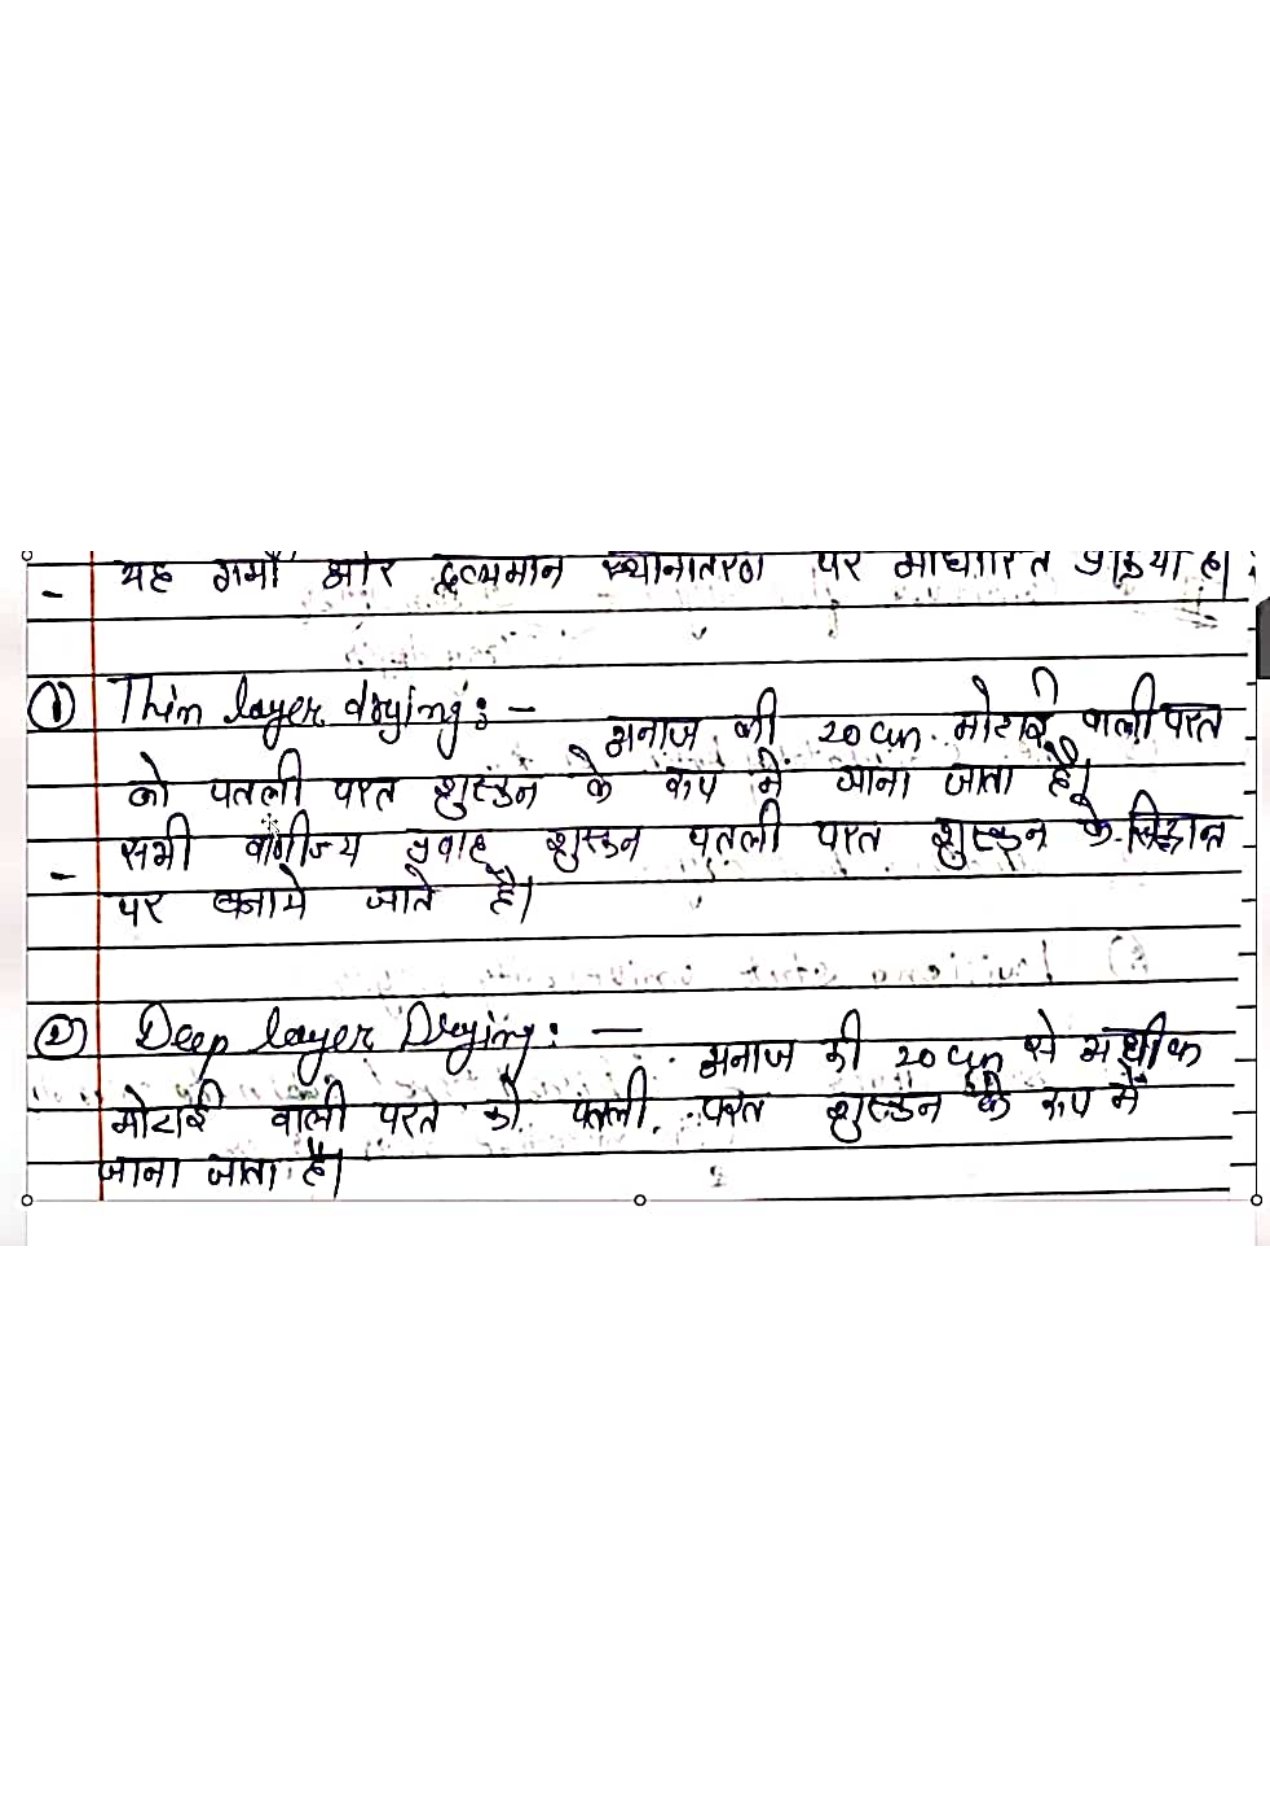 - यह गर्मी और द्रव्यमान स्थानातरण पर आधारित प्रक्रिया है।
① Thin layer drying:- अनाज की 20 cm. मोटाई वाली परत
को पतली परत शुस्कन के रूप में जाना जाता है।
- सभी वाणीज्य प्रवाह शुस्कन पतली परत शुस्कन के सिद्धान्त
पर बनाये जाते है।
② Deep layer Drying: — अनाज की 20 cm से अधीक
मोटाई वाली परत को पतली परत शुस्कन के रूप में
जाना जाता है।